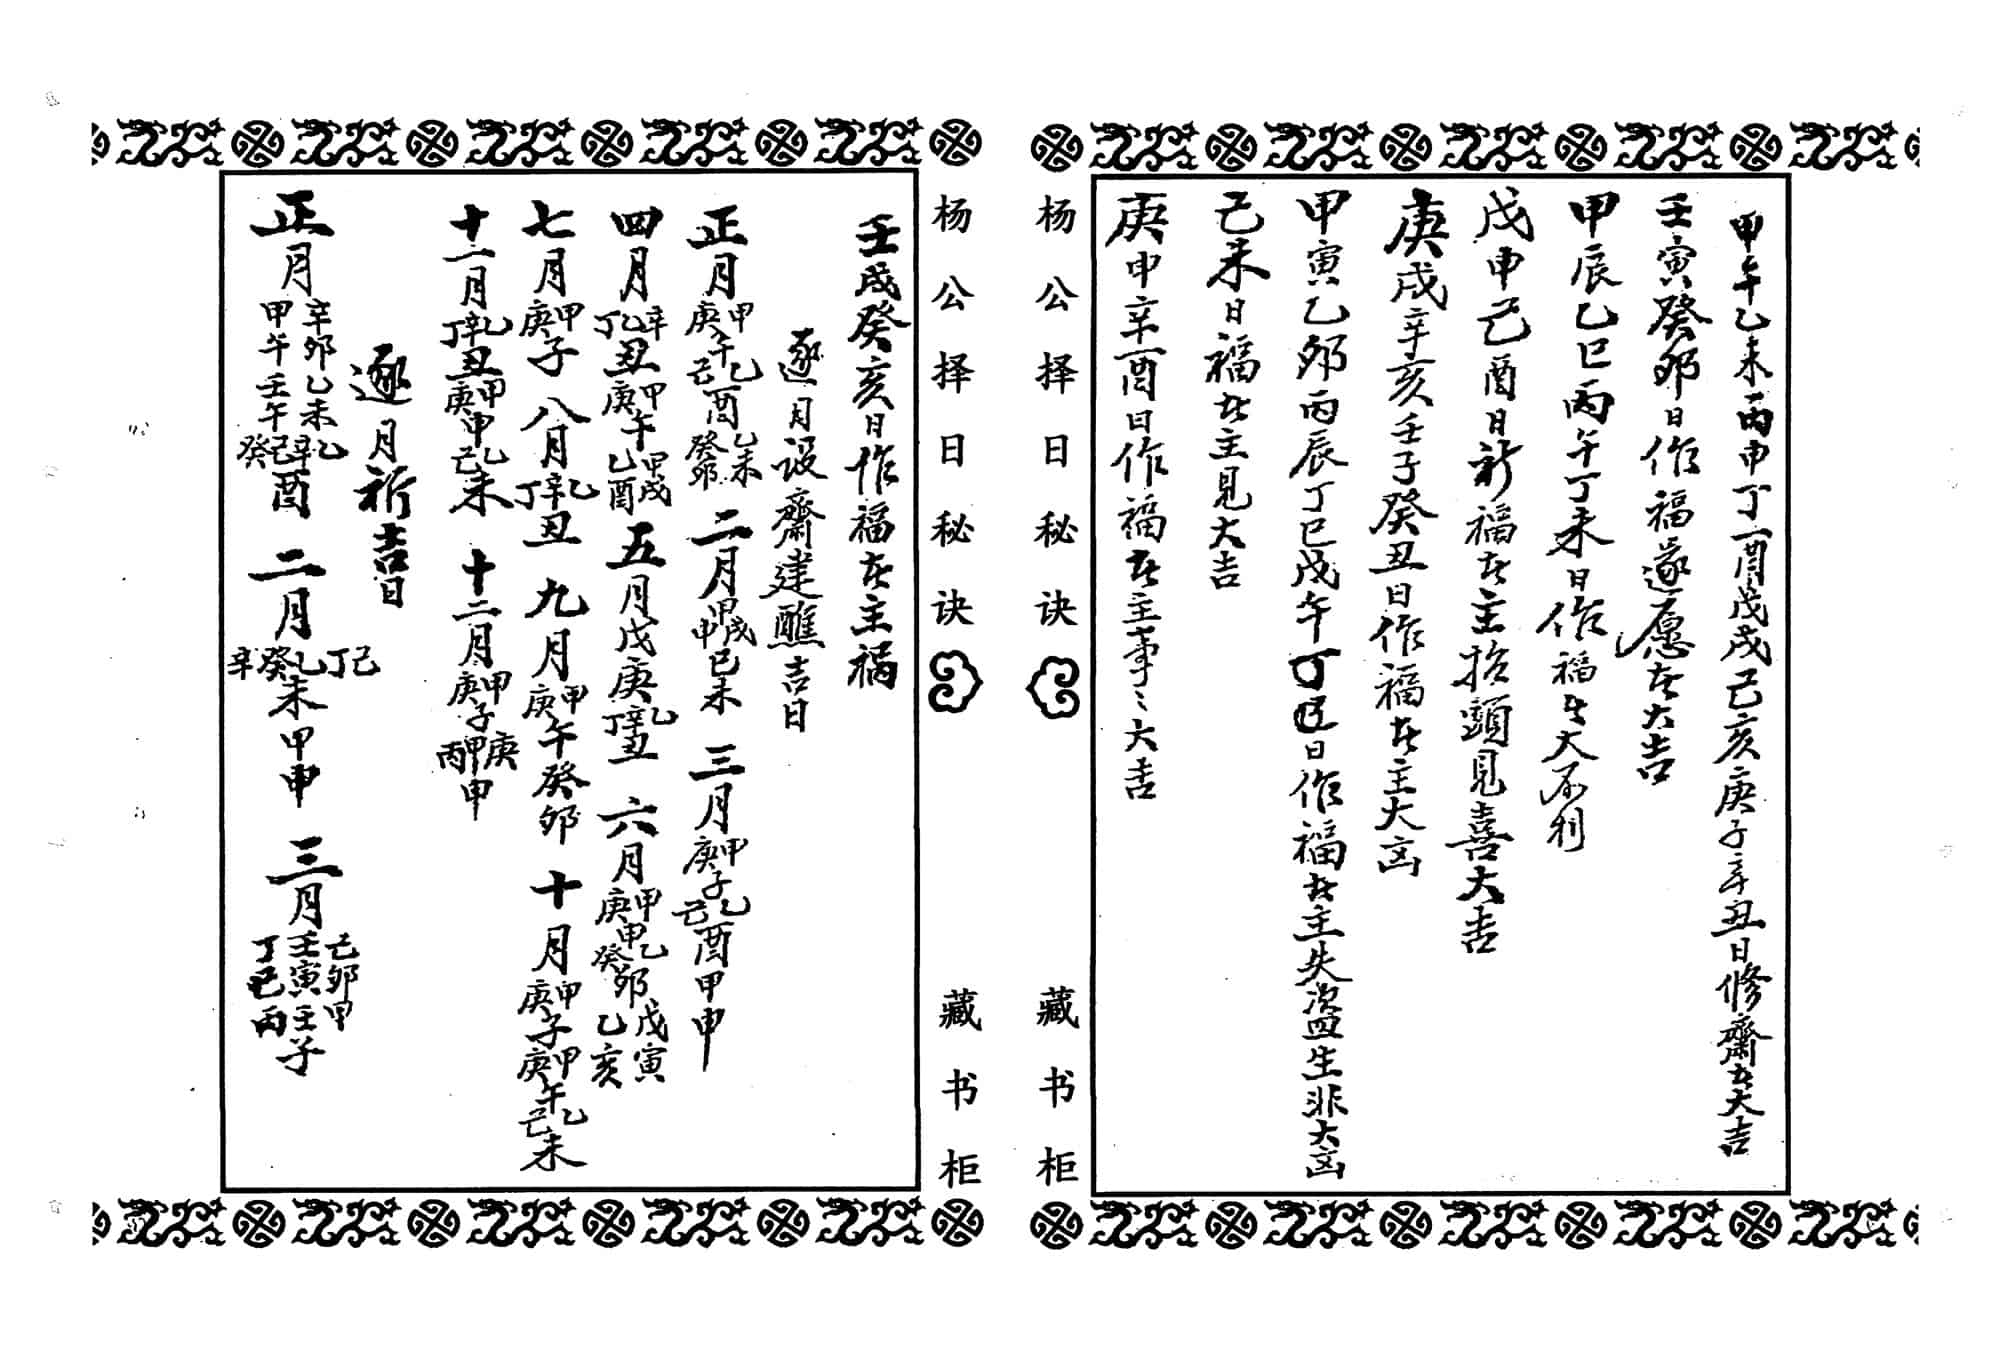 甲午乙未丙申丁酉戊戌己亥庚子辛丑日修齋者大吉
壬寅癸卯日作福還愿者大吉
甲辰乙巳丙午丁未日作福者大不利
戊申己酉日祈福者主抬頭見喜大吉
庚戌辛亥壬子癸丑日作福者主大凶
甲寅乙卯丙辰丁巳戊午丁巳日作福者主失盜生非大凶
己未日福者主見大吉
庚申辛酉日作福者主事〻大吉
杨公择日秘诀
藏书柜
杨公择日秘诀
藏书柜
壬戌癸亥日作福者主祸
逐月设齋建醮吉日
正月甲庚午乙己酉乙未癸卯 二月甲戌甲申己未 三月甲庚子乙己酉甲申
四月辛乙丁丑甲庚午甲戌乙酉 五月戊庚乙辛丁丑 六月甲庚申乙癸卯戊寅乙亥
七月甲庚子 八月乙辛丁丑 九月甲庚午癸卯 十月甲庚子甲庚午乙己未
十一月乙辛丁丑甲庚申乙己未 十二月甲庚子庚甲丙申
逐月祈吉日
正月辛卯乙未甲午壬午乙辛己癸酉 二月己丁乙癸辛未甲申 三月己卯甲壬寅壬丁巳丙子